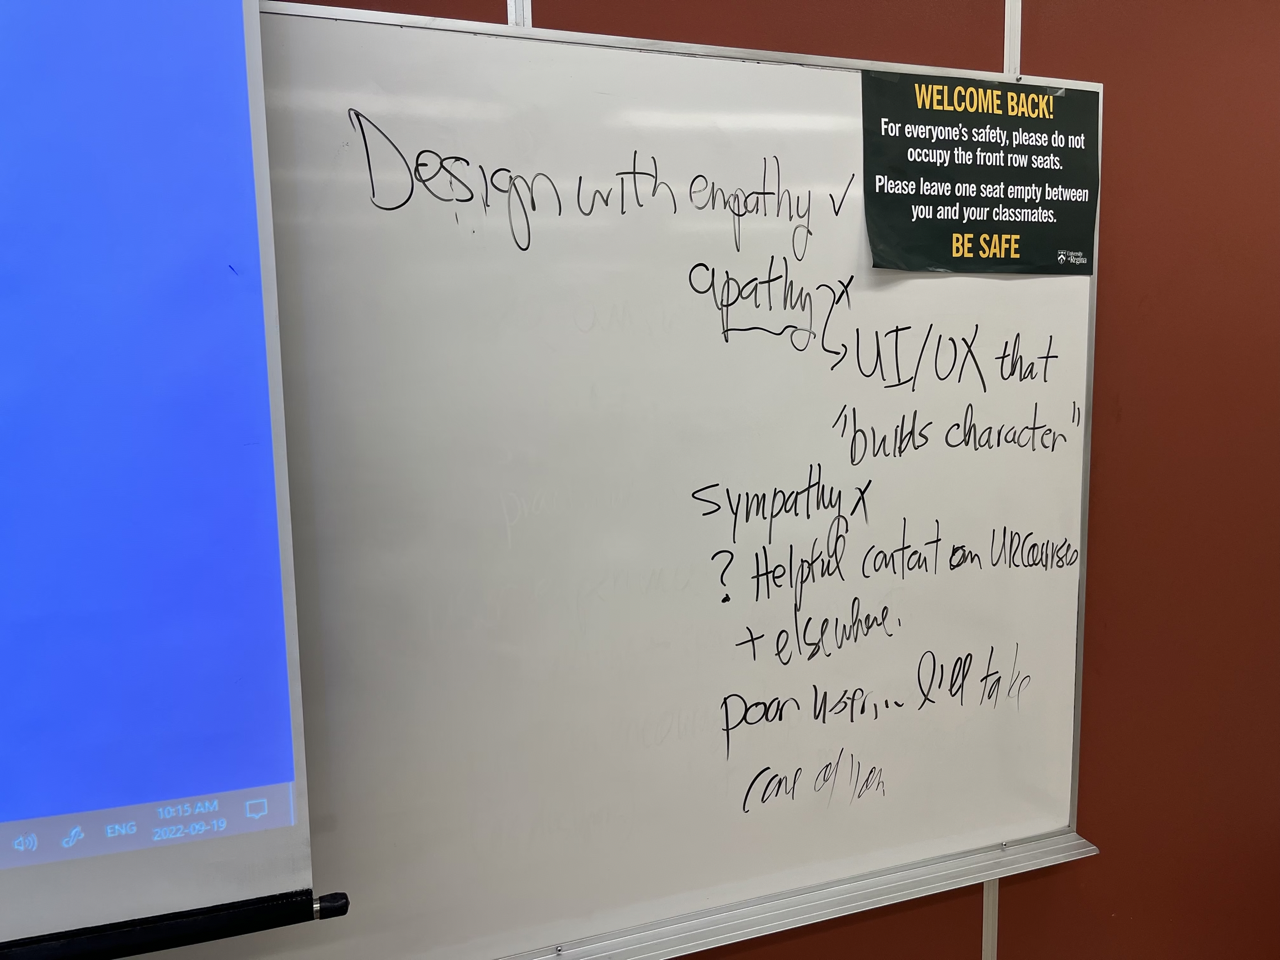 Design with empathy ✓
apathy x
UI/UX that
"builds character"
sympathy x
? Helpful content on URCourses
+ elsewhere.
poor user... I'll take
care of you
WELCOME BACK!
For everyone's safety, please do not
occupy the front row seats.
Please leave one seat empty between
you and your classmates.
BE SAFE
University
of Regina
ENG
10:15 AM
2022-09-19